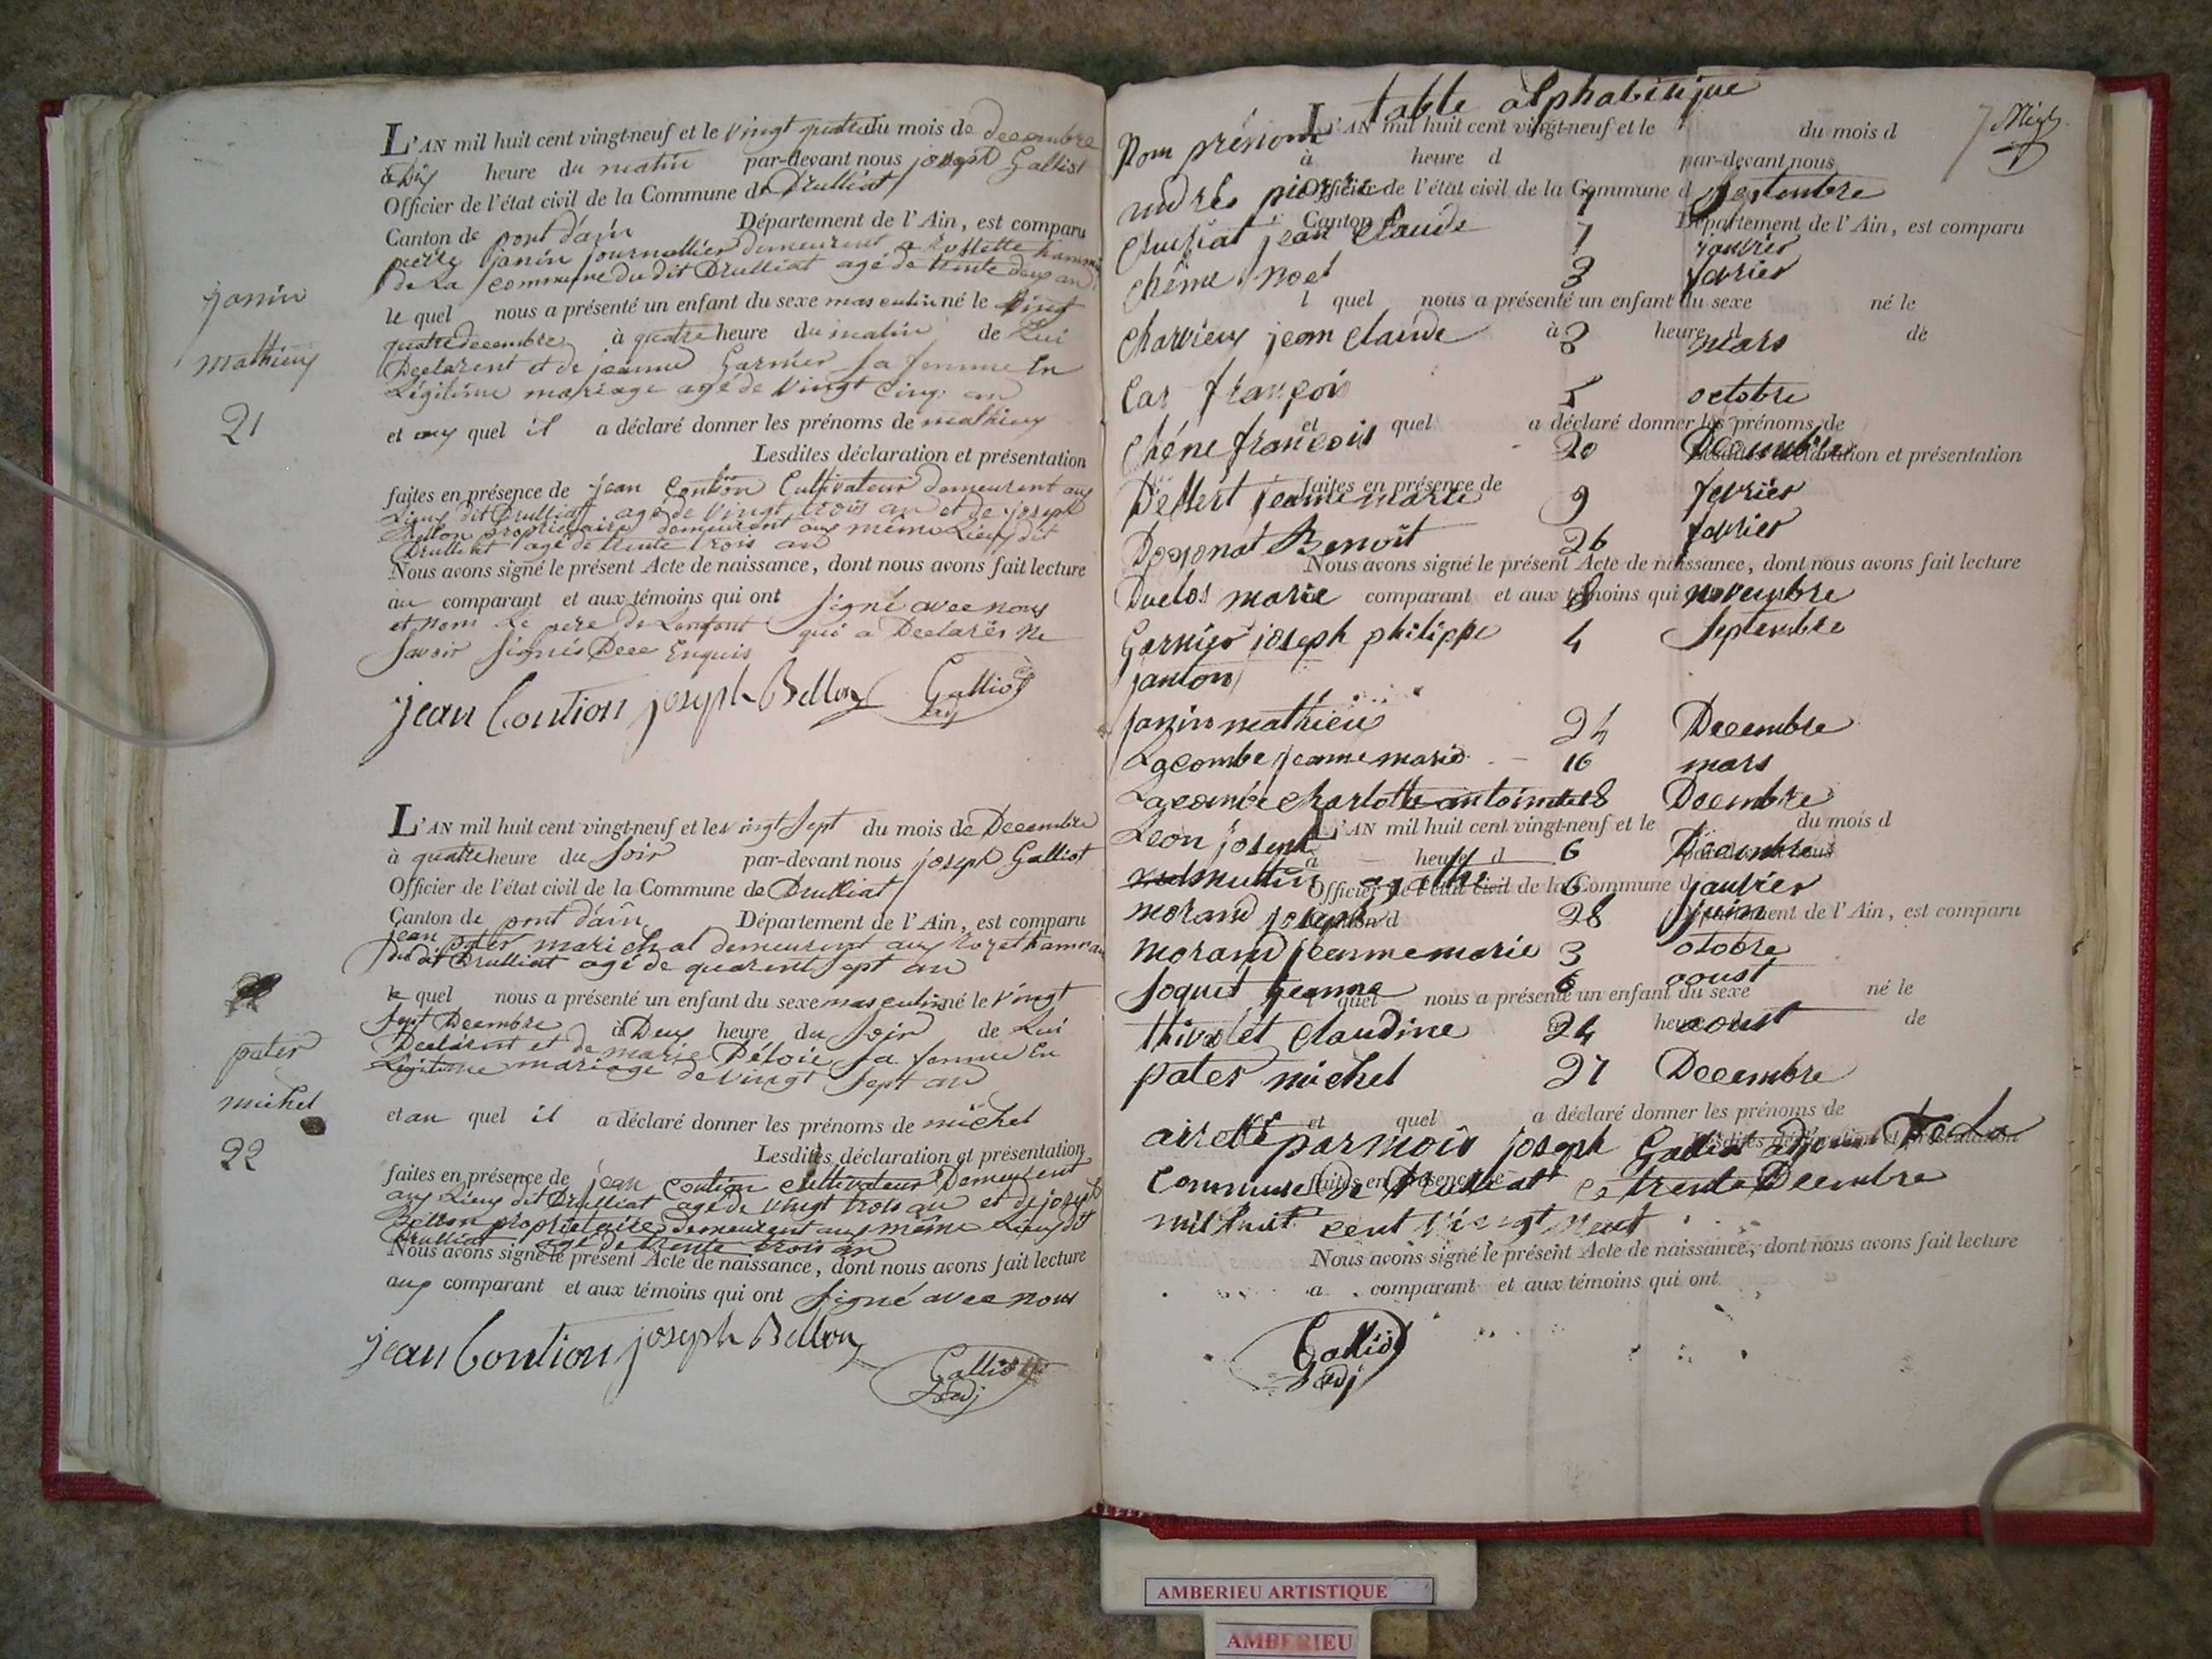 L'AN mil huit cent vingt-neuf et le vingt quatre du mois de decembre
à Dix heure du matin par-devant nous joseph Galliot
Officier de l'état civil de la Commune de Drulliat
Canton de pont d'ain Département de l'Ain, est comparu
janin journallier demeurent a hameau
de La commune du dit Drulliat agé de trente deux an
le quel nous a présenté un enfant du sexe masculin né le vingt
quatre decembre à quatre heure du matin de Lui
Declarent et de jeanne Garnier sa femme En
Légitime mariage agé de vingt cinq an
et aux quel il a déclaré donner les prénoms de mathieux
Lesdites déclaration et présentation
faites en présence de jean Contion Cultivateur demeurent aux
Lieux dit Drulliat agé de vingt trois an et de joseph
Bellon propriétaire demeurent aux même Lieux dit
Drulliat agé de trente trois an
Nous avons signé le présent Acte de naissance, dont nous avons fait lecture
au comparant et aux témoins qui ont signé avec nous
et non Le pere de Lenfant qui a Declarés ne
savoir signés Enquis
jean Contion joseph Bellon Galliot
adj
janin
mathieux
21
L'AN mil huit cent vingt-neuf et le vingt sept du mois de Decembre
à quatre heure du soir par-devant nous joseph Galliot
Officier de l'état civil de la Commune de Drulliat
Canton de pont d'ain Département de l'Ain, est comparu
jean pater marichal demeurent aux hameau
du dit Drulliat agé de quarent sept an
le quel nous a présenté un enfant du sexe masculin né le vingt
sept Decembre à Deux heure du soir de Lui
Declarent et de marie sa femme En
Légitime mariage de vingt sept an
et au quel il a déclaré donner les prénoms de michel
Lesdites déclaration et présentation
faites en présence de jean Contion cultivateur Demeurent
aux Lieux dit Drulliat agé de vingt trois an et de joseph
Bellon propriétaire demeurent aux même Lieux dit
Drulliat agé de trente trois an
Nous avons signé le présent Acte de naissance, dont nous avons fait lecture
aux comparant et aux témoins qui ont signé avec nous
jean Contion joseph Bellon Galliot
adj
pater
michel
22
table alphabetique
L'AN mil huit cent vingt-neuf et le du mois d
Nom prénom
à heure d par-devant nous
pierre 7 septembre
Officier de l'état civil de la Commune d
Canton d Département de l'Ain, est comparu
jean Claude 7 janvier
chêne Noel 3 favrier
l quel nous a présenté un enfant du sexe né le
à heure d de
Charvieux jean claude 8 mars
Cas françois 5 octobre
et quel a déclaré donner les prénoms de
Chéne françois 20 Decembre
Lesdites déclaration et présentation
faites en présence de
jeanne marie 9 fevrier
Benoit 26 favrier
Nous avons signé le présent Acte de naissance, dont nous avons fait lecture
Duclos marie 8 novembre
comparant et aux témoins qui
Garnier joseph philippe 4 septembre
janton
janin mathieu 24 Decembre
Lacombe jeanne marie 16 mars
Lacombe charlotte 18 Decembre
L'AN mil huit cent vingt-neuf et le du mois d
Leon joseph 6 Decembre
à heure d
agathe 6 janvier
Officier de l'état civil de la Commune d
morand joseph 28 juin
Département de l'Ain, est comparu
morand jeanne marie 3 otobre
soquet jeanne 6 aoust
l quel nous a présenté un enfant du sexe né le
thivolet claudine 24 aoust
heure de
pater michel 27 Decembre
et quel a déclaré donner les prénoms de
arretté par moi joseph Galliot adjoint De La
Lesdites déclaration et présentation
Commune de Drulliat Ce trente Decembre
faites en présence de
mil huit cent vingt neuf
Nous avons signé le présent Acte de naissance, dont nous avons fait lecture
a comparant et aux témoins qui ont
Galliot
adj
AMBERIEU ARTISTIQUE
AMBERIEU